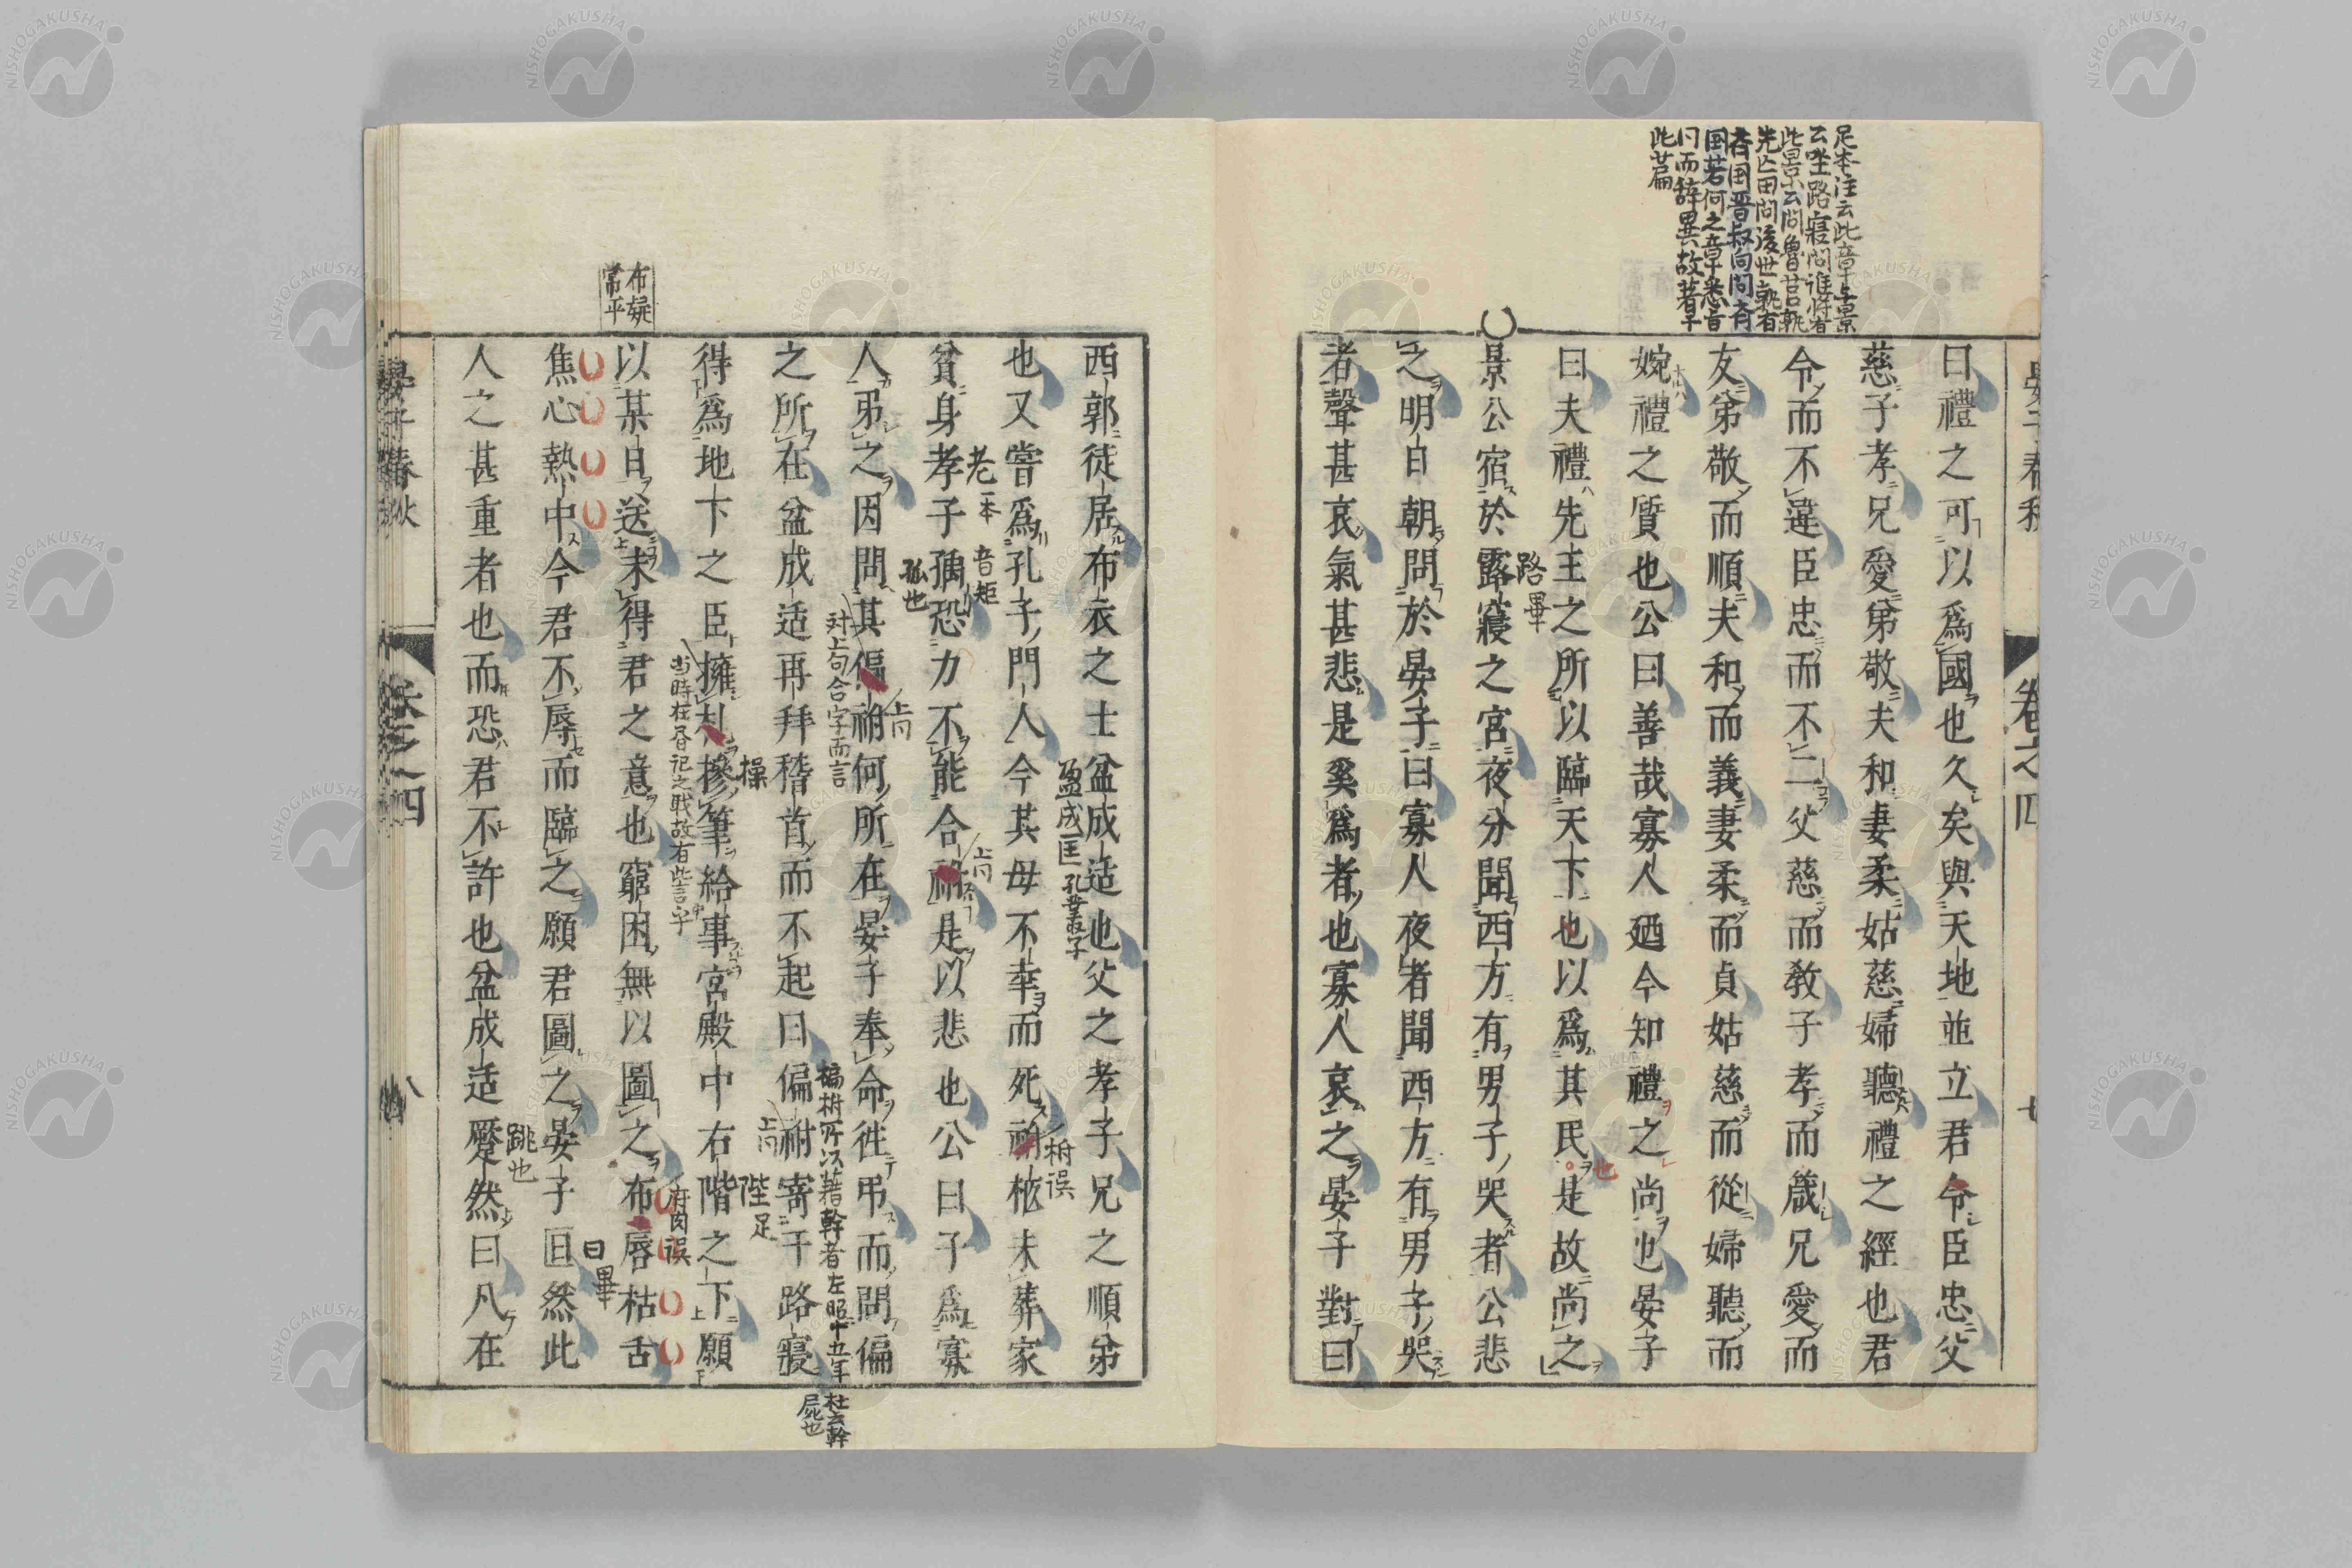 足本注云此章与景
云坐路寝問誰将有
此景云問魯莒孰
先亡田問後世孰有
斉国晋叔向問斉
国若何之章悉旨
同而辞異故著于
此篇
曰禮之可以爲國也久矣與天地並立君令臣忠父
慈子孝兄愛弟敬夫和妻柔姑慈婦聽禮之經也君
令而不違臣忠而不二父慈而教子孝而箴兄愛而
友弟敬而順夫和而義妻柔而貞姑慈而從婦聽而
婉禮之質也公曰善哉寡人廼今知禮之尚也晏子
曰夫禮先主之所以臨天下也以爲其民是故尚之
也
景公宿於露寢之宮夜分聞西方有男子哭者公悲
路畢
之明日朝問於晏子曰寡人夜者聞西方有男子哭
者聲甚哀氣甚悲是奚爲者也寡人哀之晏子對曰
晏子春秋
卷之四
七
西郭徒居布衣之士盆成适也父之孝子兄之順弟
盈成匡 孔叢子
也又嘗爲孔子門人今其母不幸而死祔柩未葬家
祔誤
貧身孝子孺恐力不能合祔是以悲也公曰子爲寡
老一本
音矩
孤也
上同
人弔之因問其偏祔何所在晏子奉命往弔而問偏
上同
之所在盆成适再拜稽首而不起曰偏祔寄于路寢
対上句合字而言
楄柎所以藉幹者左昭二十五年
杜云幹
屍也
上同
得爲地下之臣擁札摻筆給事宮殿中右階之下願
操
陛足
以某日送未得君之意也窮困無以圖之布唇枯舌
当時在昏記之戦故有此言乎
府肉誤
布疑
常平
焦心熱中今君不辱而臨之願君圖之晏子曰然此
曰畢
人之甚重者也而恐君不許也盆成适蹙然曰凡在
跳也
晏子春秋
卷之四
八
NISHOGAKUSHA